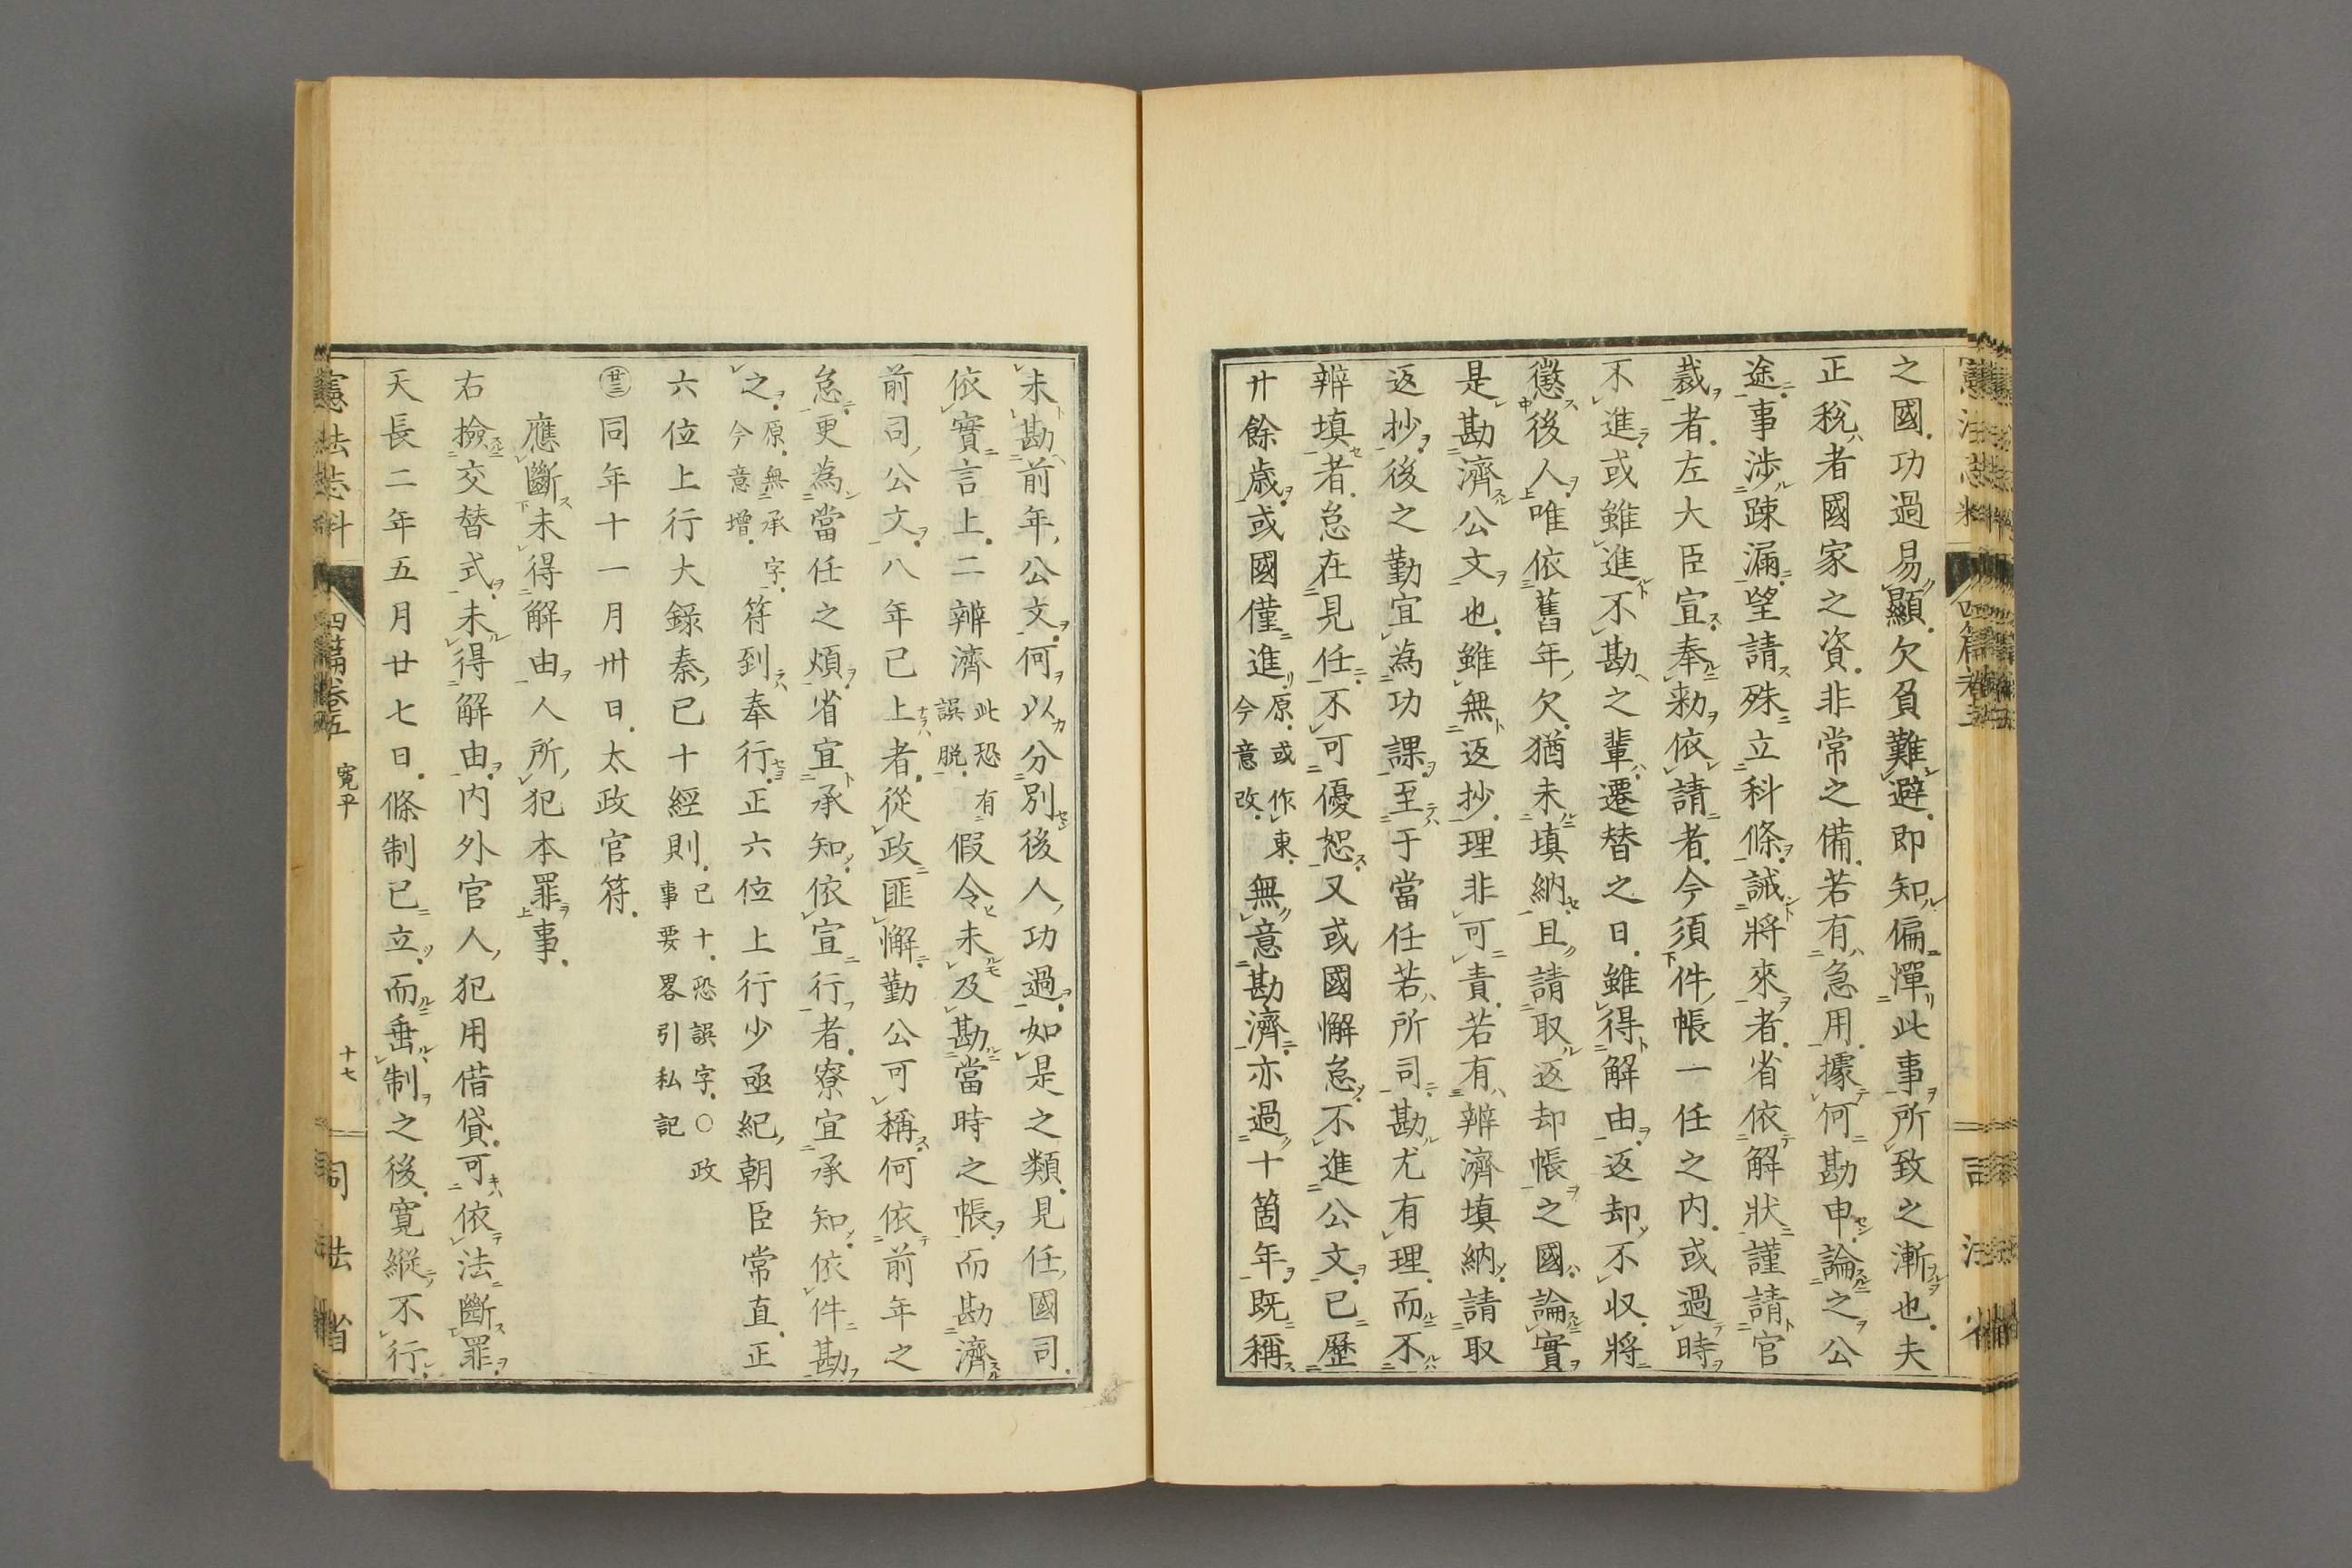 之國功過易顯欠負難避即知偏憚此事所致之漸也夫
正税者國家之資非常之備若有急用據何勘申論之公
途事渉踈漏望請殊立科條誡將來者省依解狀謹請官
裁者左大臣宣奉勅依請者今須件帳一任之内或過時
不進或雖進不勘之輩遷替之日雖得解由返却不収將
懲後人唯依舊年欠猶未填納且請取返却帳之國論實
是勘濟公文也雖無返抄理非可責若有辨濟填納請取
返抄後之勤宜為功課至于當任若所司勘尤有理而不
辨填者怠在見任不可優恕又或國懈怠不進公文已歷
廾餘歳或國僅進原或作東今意改無意勘濟亦過十箇年既稱
未勘前年公文何以分別後人功過如是之類見任國司
依實言上二辨濟此恐有誤脱假令未及勘當時之帳而勘濟
前司公文八年已上者從政匪懈勤公可稱何依前年之
怠更為當任之煩省宜承知依宣行者寮宜承知依件勘
之原無承字今意增符到奉行正六位上行少亟紀朝臣常直正
六位上行大錄秦已十經則已十恐誤字〇政事要畧引私記
㊂同年十一月卅日太政官符
應斷未得解由人所犯本罪事
右撿交替式未得解由内外官人犯用借貸可依法斷罪
天長二年五月廿七日條制已立而垂制之後寛縱不行
憲法志料
四篇卷五
寛平
十七
司法省